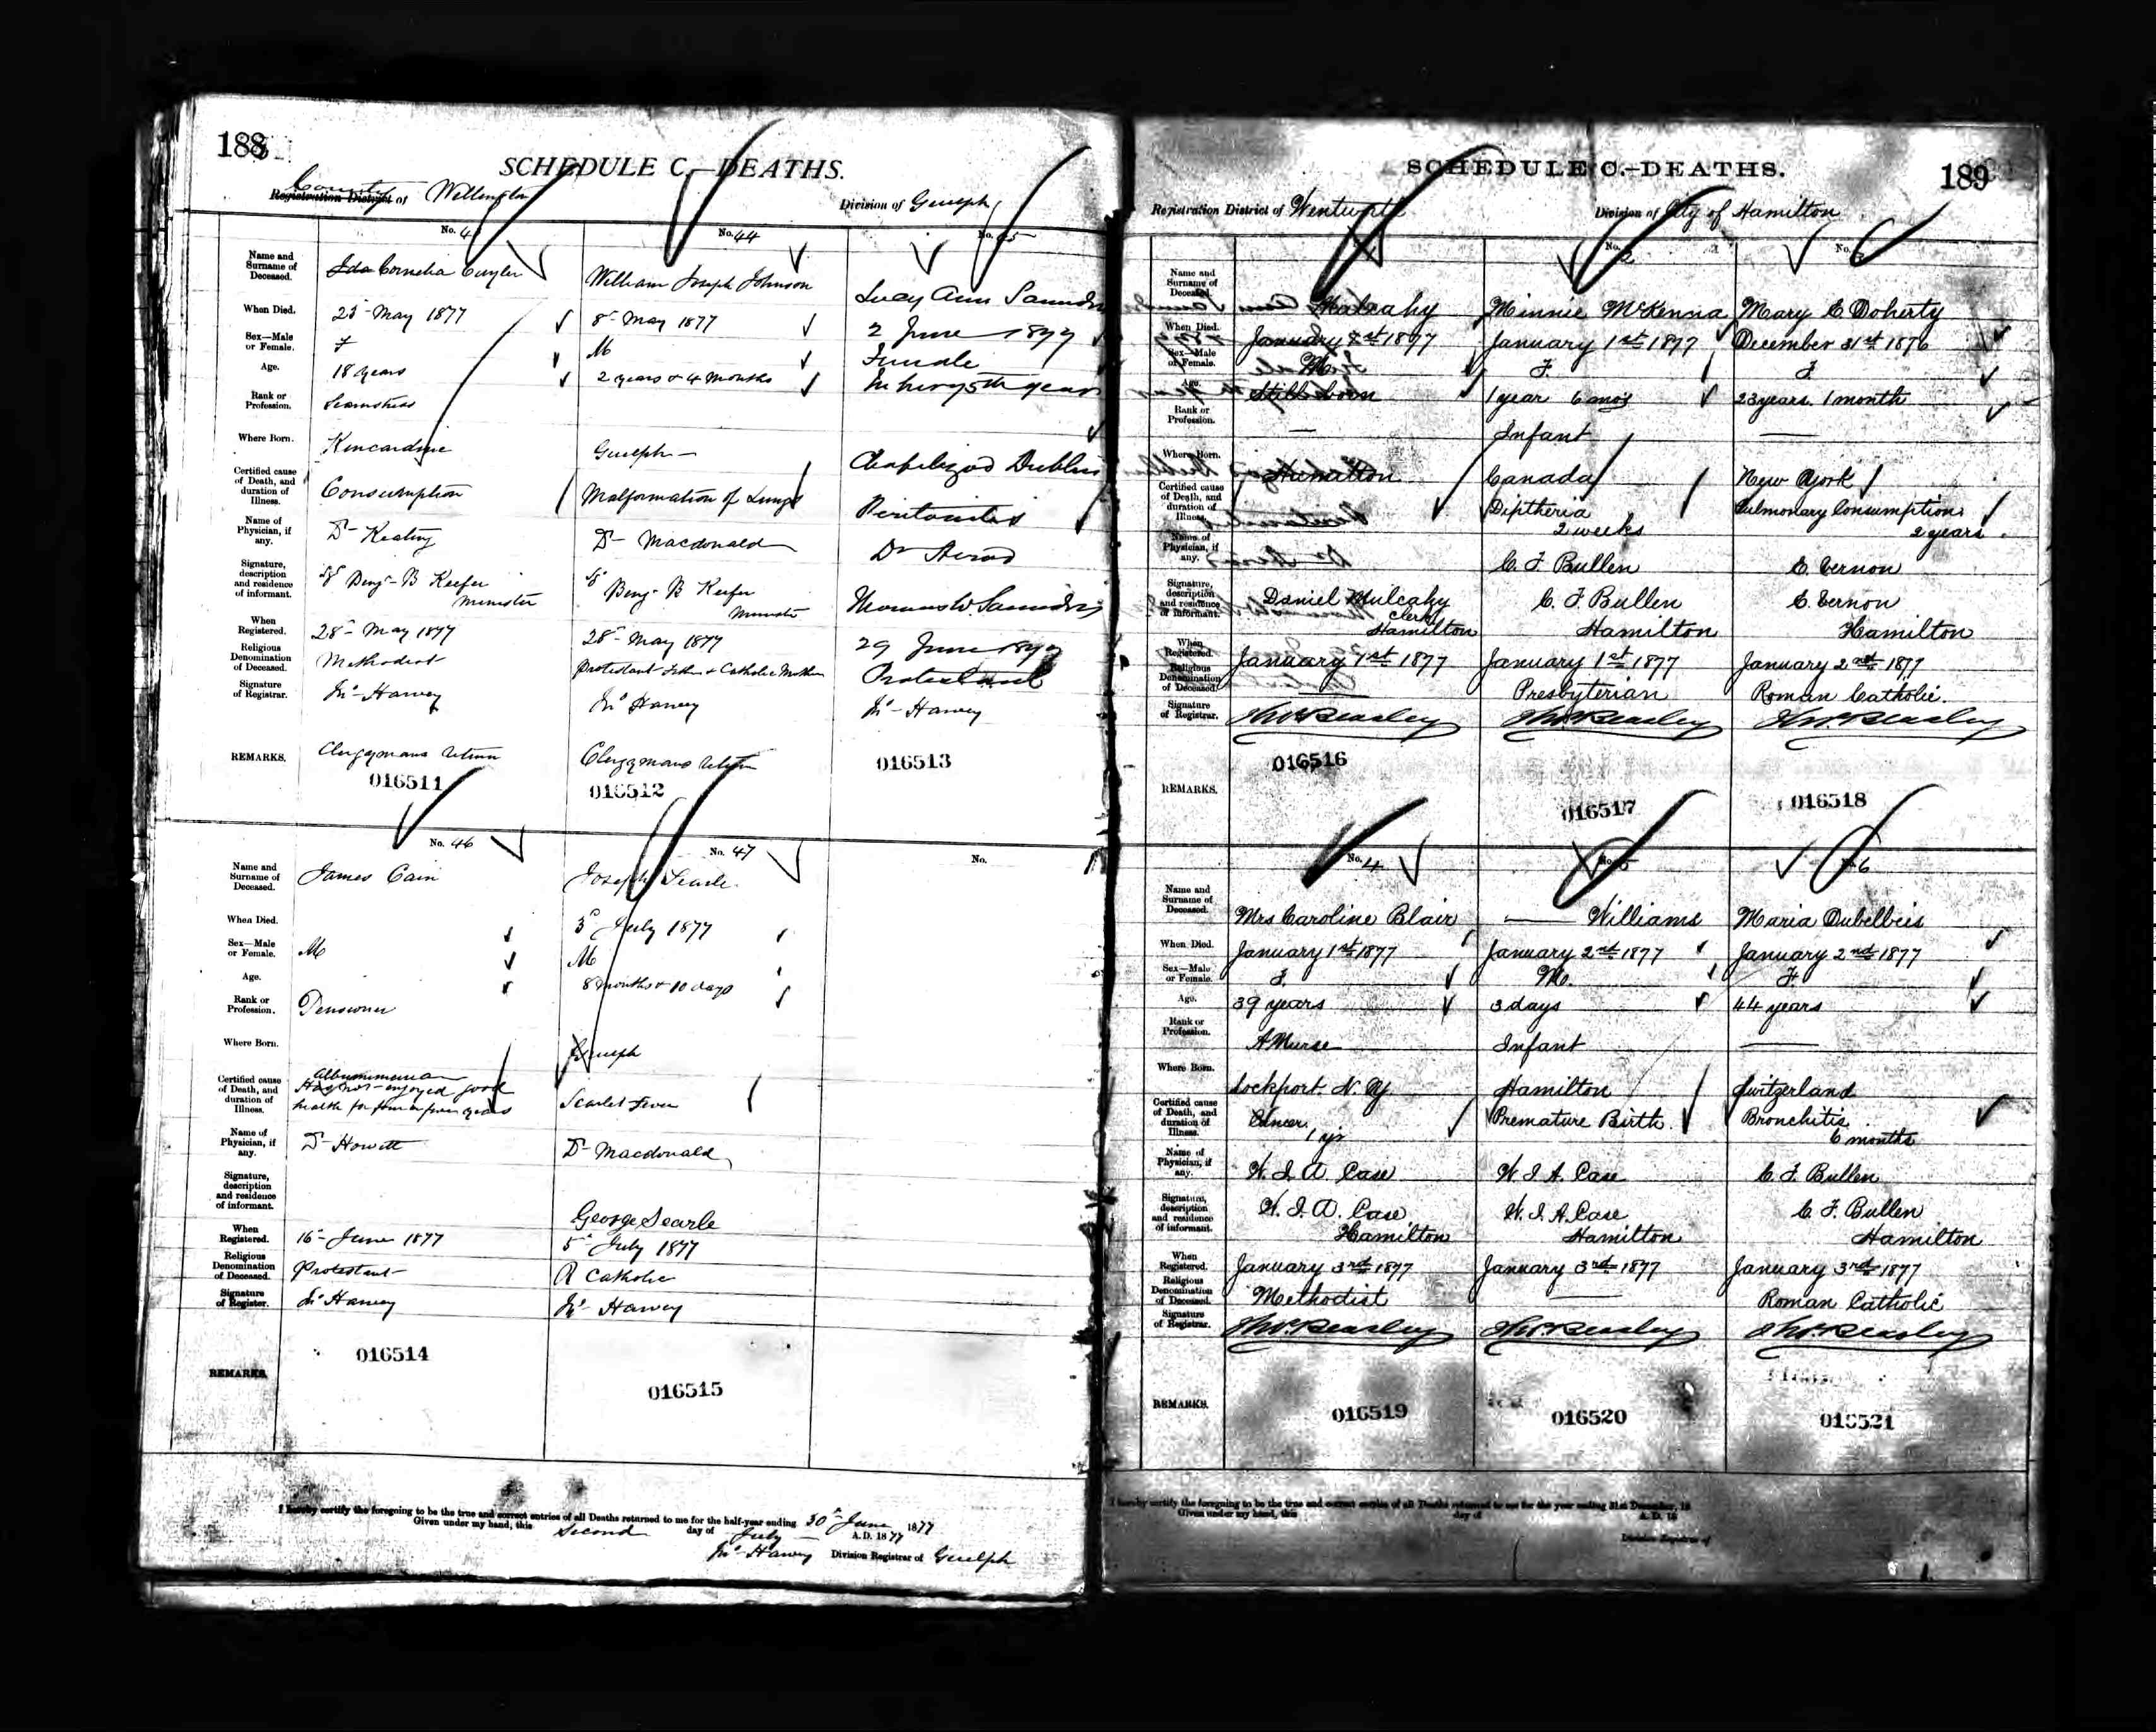 188
SCHEDULE C.—DEATHS.
County
Registration District of Wellington
Division of Guelph
No. No. 44 No. 45
Name and Surname of Deceased. Ida Cornelia Cuyler William Joseph Johnson Lucy Ann
When Died. May 1877 8th May 1877 2 June 1877
Sex—Male or Female. F M Female
Age. 18 years 2 years & 4 months In her 75th year
Rank or Profession. Seamstress
Where Born. Kincardine Guelph Chapelizod Dublin
Certified cause of Death, and duration of Illness. Consumption Malformation of Lungs Peritonitis
Name of Physician, if any. Dr Keating Dr Macdonald Dr
Signature, description and residence of informant. Benj. B Keefer Minister Benj. B Keefer Minister Thomas W Saunders
When Registered. 28th May 1877 28th May 1877 29 June 1877
Religious Denomination of Deceased. Methodist Protestant Father & Catholic Mother Protestant
Signature of Registrar. Jno Harvey Jno Harvey Jno Harvey
REMARKS. Clergymans return Clergymans return
016511 016512 016513
No. 46 No. 47 No.
Name and Surname of Deceased. James Cain Joseph Searle
When Died. 3d July 1877
Sex—Male or Female. M M
Age. 8 months & 10 days
Rank or Profession. Pensioner
Where Born. Guelph
Certified cause of Death, and duration of Illness. Has not enjoyed good health for four or five years Scarlet Fever
Name of Physician, if any. Dr Howitt Dr Macdonald
Signature, description and residence of informant. George Searle
When Registered. 16th June 1877 5th July 1877
Religious Denomination of Deceased. Protestant R Catholic
Signature of Register. Jno Harvey Jno Harvey
016514 016515
REMARKS.
I hereby certify the foregoing to be the true and correct entries of all Deaths returned to me for the half-year ending 30th June 1877
Given under my hand, this Second day of July A.D. 1877
Jno Harvey Division Registrar of Guelph
SCHEDULE C.—DEATHS.
189
Registration District of Wentworth
Division of City of Hamilton
No. 2 No.
Name and Surname of Deceased. Mulcahy Minnie McKenna Mary E Doherty
When Died. January 1st 1877 December 31st 1876
Sex—Male or Female. M. F. F.
Age. Stillborn 1 year 6 mos 23 years. 1 month
Rank or Profession. — Infant —
Where Born. Hamilton Canada New York
Certified cause of Death, and duration of Illness. Diptheria 2 weeks Pulmonary Consumption 2 years.
Name of Physician, if any. C. F Bullen E. Vernon
Signature, description and residence of informant. Daniel Mulcahy Clerk Hamilton C. F. Bullen Hamilton E. Vernon Hamilton
When Registered. January 1st 1877 January 1st 1877 January 2nd 1877
Religious Denomination of Deceased. — Presbyterian Roman Catholic.
Signature of Registrar. Thos Beasley Thos Beasley Thos Beasley
016516 016517 016518
REMARKS.
No. 4 No. 5 6
Name and Surname of Deceased. Mrs Caroline Blair — Williams Maria Dubelbeis
When Died. January 1st 1877 January 2nd 1877 January 2nd 1877
Sex—Male or Female. F. M. F.
Age. 39 years 3 days 44 years
Rank or Profession. A Nurse Infant —
Where Born. Lockport N.Y. Hamilton Switzerland
Certified cause of Death, and duration of Illness. Cancer 1 yr Premature Birth. Bronchitis 6 months
Name of Physician, if any. W. I. A. Case W. I. A. Case C. F. Bullen
Signature, description and residence of informant. W. I. A. Case Hamilton W. I. A. Case Hamilton C. F. Bullen Hamilton
When Registered. January 3rd 1877 January 3rd 1877 January 3rd 1877
Religious Denomination of Deceased. Methodist — Roman Catholic
Signature of Registrar. Thos Beasley Thos Beasley Thos Beasley
REMARKS. 016519 016520 016521
I hereby certify the foregoing to be the true and correct entries of all Deaths returned to me for the year ending 31st December, 18
Given under my hand, this day of A.D. 18
Division Registrar of